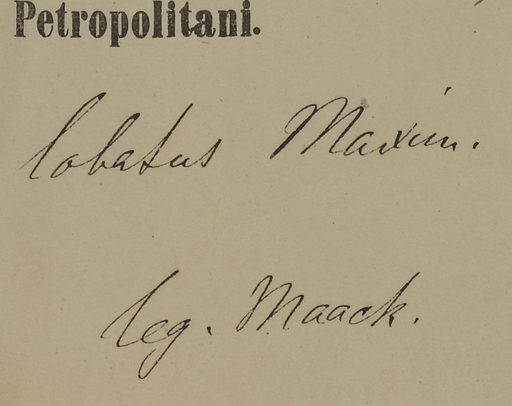 Petropolitani.
lobatus Maxim.
leg. Maack.